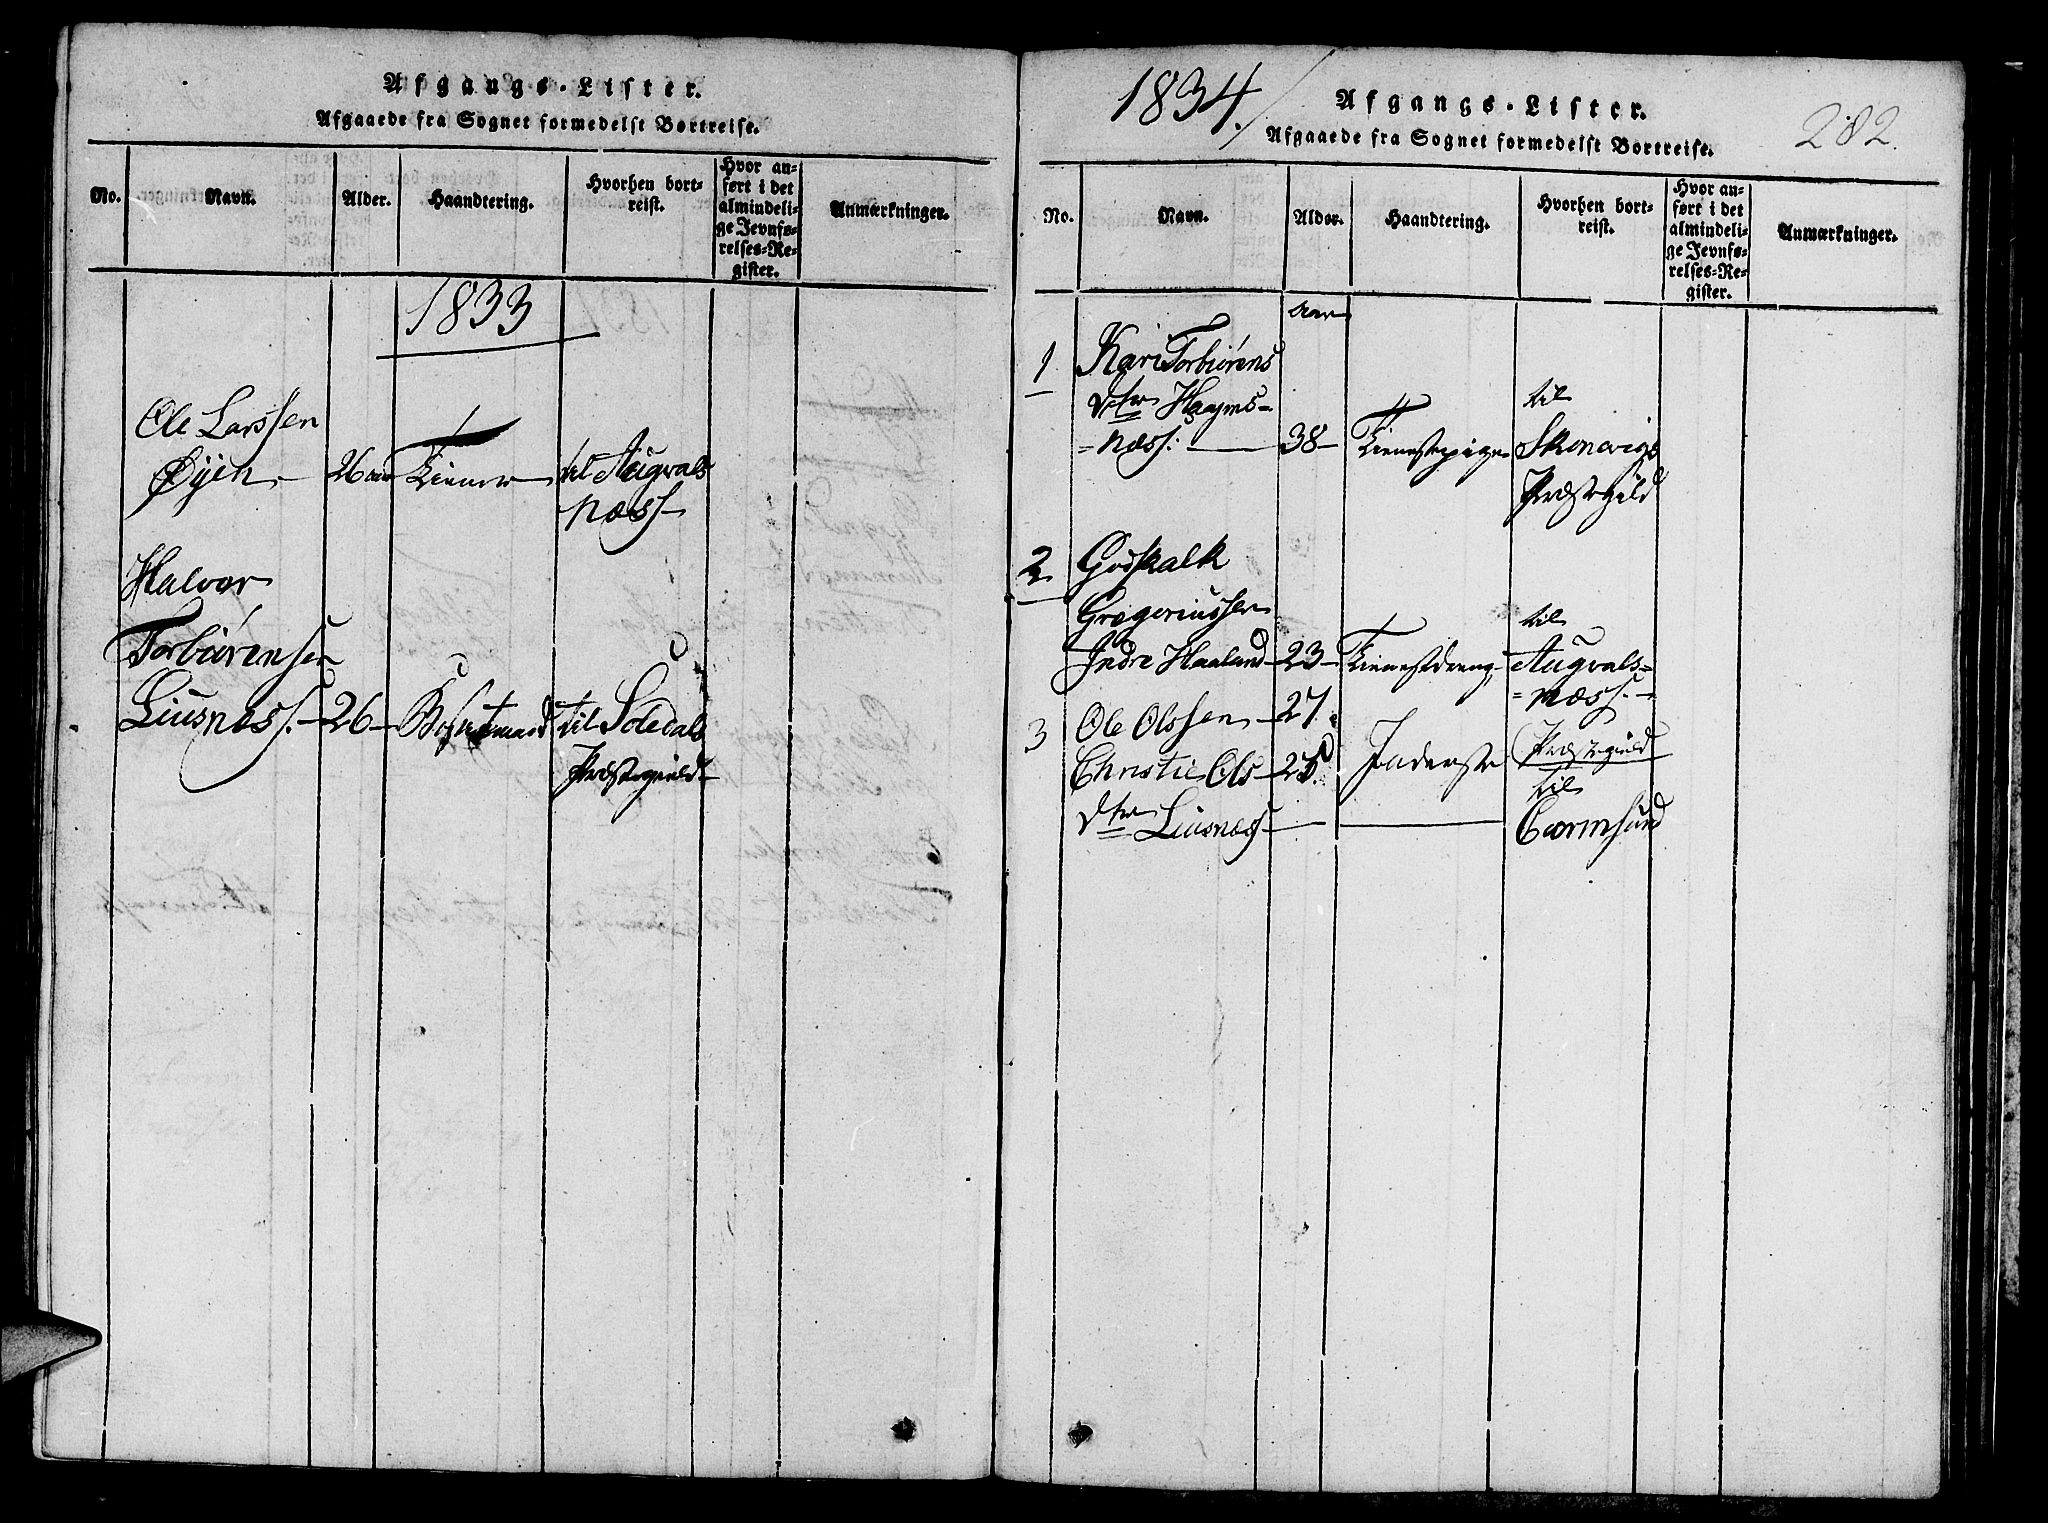 Afgangs-Lister.
Afgaaede fra Sognet formedelst Bortreise.
No. Navn. Alder. Haandtering. Hvorhen bort-
reist. Hvor an-
ført i det
almindeli-
ge Jevnfø-
relses-Re-
gister. Anmærkninger.
1833
Ole Larssen
Øyen - 26 aar Tiener til Augvals
næss -
Halvor
Torbiørensen
Liusness. - 26 - til Soledals
Præstegield -
1834.
Afgangs-Lister.
282.
Afgaaede fra Sognet formedelst Bortreise.
No. Navn. Alder. Haandtering. Hvorhen bort-
reist. Hvor an-
ført i det
almindeli-
ge Jevnfø-
relses-Re-
gister. Anmærkninger.
Aar
1 Kari Torbiørens
dtr Haajms=
=næss: 38 - Tienestepige til
Skonevigs
Præstegield
2 Godskalk
Gregoriussen
Indre Haaland - 23 - Tienestdreng til
Augvals=
=næss. -
Præstegield
3 Ole Olssen - 27.
Christie Ols - 25. Inderste til
dtr Liusness - Carmsund